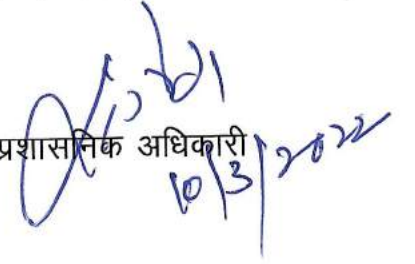 प्रशासनिक अधिकारी
10/3/2022